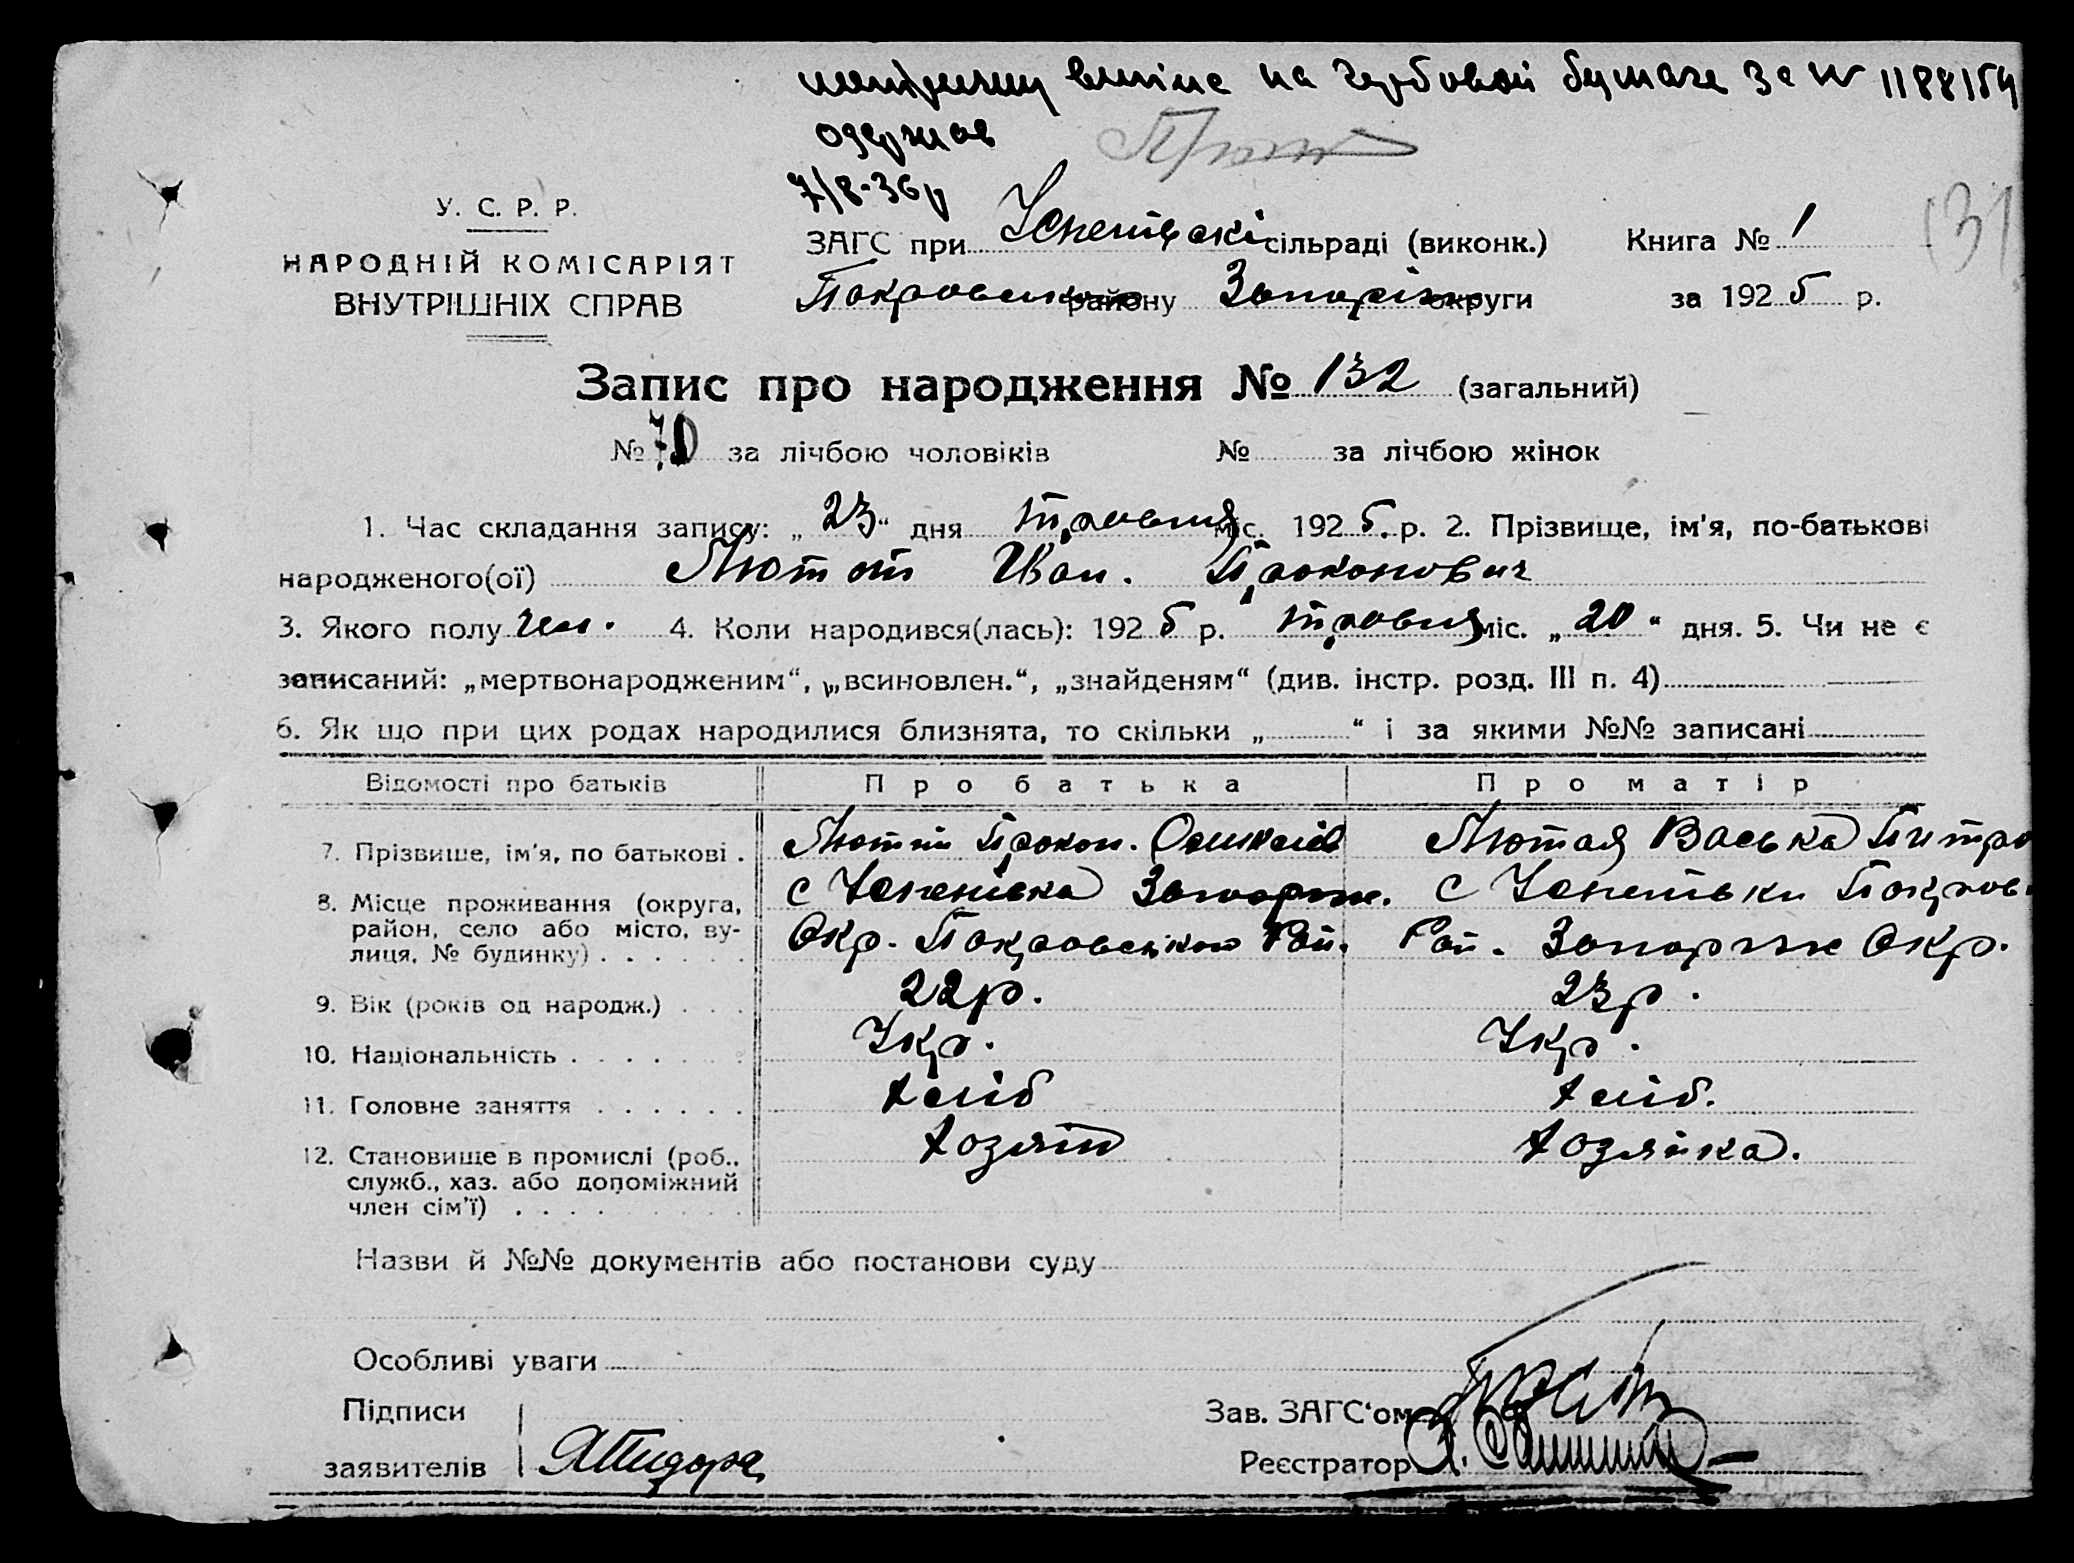 метричну випис на гербовой бумаге За № 1188154
одержав
7/8-36р
У. С. Р. Р.
НАРОДНІЙ КОМІСАРІЯТ
ВНУТРІШНІХ СПРАВ
ЗАГС при Успенівскі сільраді (виконк.) Книга № 1
Покровськ району Запоріж округи за 1925 р.
Запис про народження № 132 (загальний)
№ 70 за лічбою чоловіків № за лічбою жінок
1. Час складання запису: „23“ дня травня міс. 1925 р. 2. Прізвище, ім'я, по-батькові
народженого(ої) Лютот Иван. Прокопович
3. Якого полу чол. 4. Коли народився(лась): 1925 р. травня міс. „20“ дня. 5. Чи не є
записаний: „мертвонародженим“, „всиновлен.“, „знайденям“ (див. інстр. розд. III п. 4)
6. Як що при цих родах народилися близнята, то скільки „ “ і за якими №№ записані
Відомості про батьків Про батька Про матір
7. Прізвище, ім'я, по батькові . Лютий Прокоп. Лютая Васька Питро
8. Місце проживання (округа, район, село або місто, вулиця, № будинку) . . . . . . с Успенівка Запорож. с Успенівки Покров
Окр. Покровського Рай. Рай. Запоріж Окр.
9. Вік (років од народж.) . . . 22р. 23р.
10. Національність . . . . . . . Укр. Укр.
11. Головне заняття . . . . . . хліб хліб.
12. Становище в промислі (роб., служб., хаз. або допоміжний член сім'ї) . . . . . . . . хозяїн хозяйка.
Назви й №№ документів або постанови суду
Особливі уваги
Підписи
заявителів
Зав. ЗАГС'ом
Реєстратор